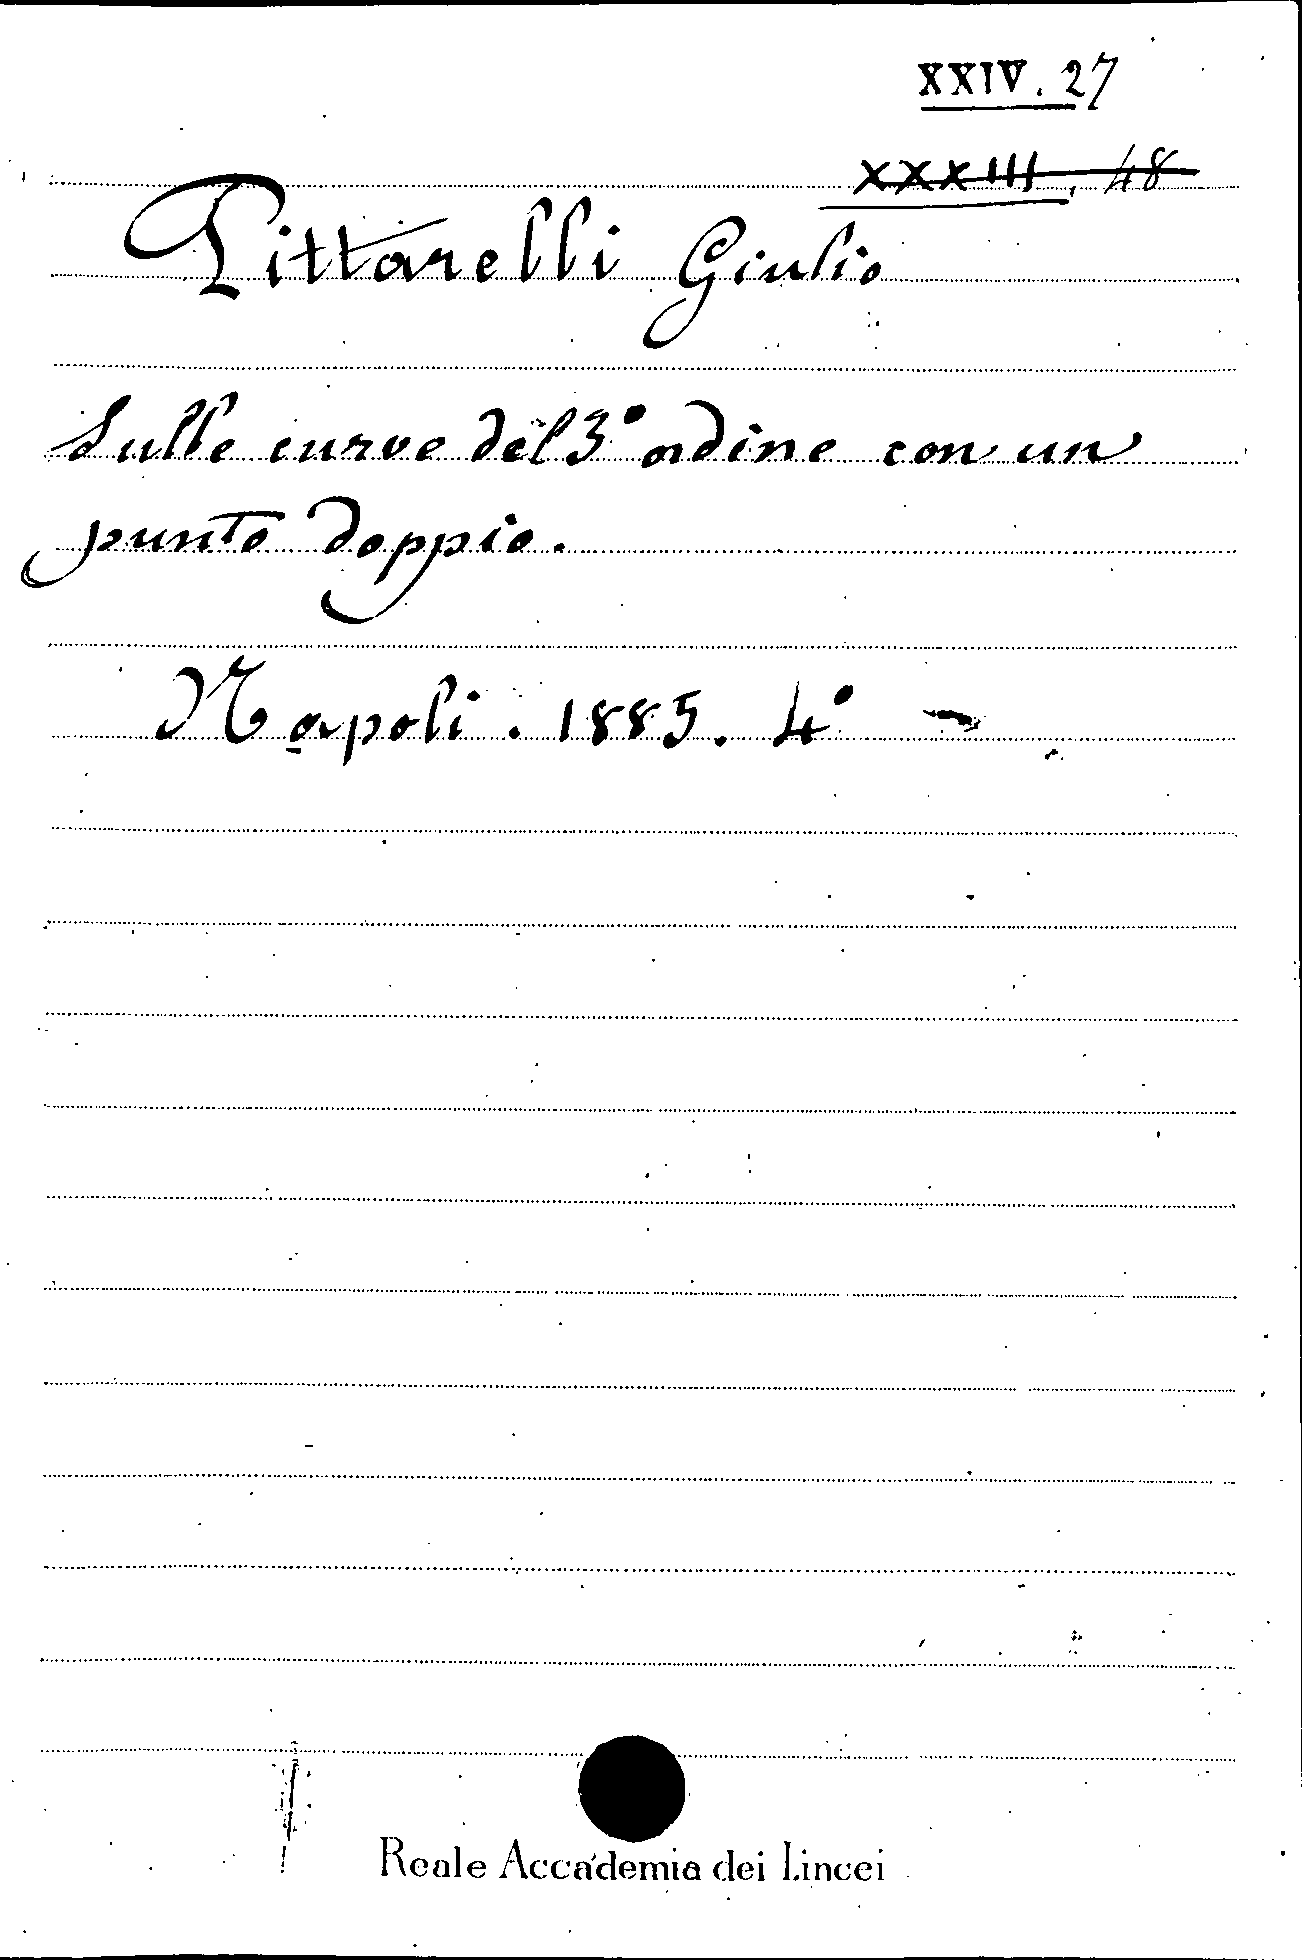 XXIV. 27
XXXIII, 48
Pittarelli Giulio
Sulle curve del 3° ordine con un
punto doppio.
Napoli. 1885. 4°
Reale Accademia dei Lincei